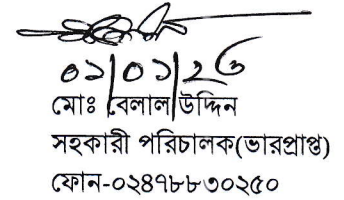 ০১/০১/২৬
মোঃ বেলাল উদ্দিন
সহকারী পরিচালক(ভারপ্রাপ্ত)
ফোন-০২৪৭৮৮৩০২৫০